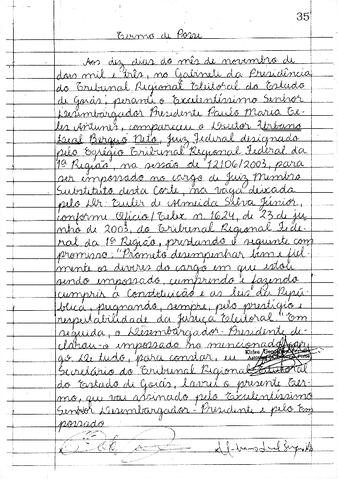 35
Termo de Posse
Aos dez dias do mês de novembro de
dois mil e três, no Gabinete da Presidência
do Tribunal Regional Eleitoral do Estado
de Goiás, perante o Excelentíssimo Senhor
Desembargador Presidente Paulo Maria Te-
les Antunes, compareceu o Doutor Urbano
Leal Berquó Neto, Juiz Federal designado
pelo Egrégio Tribunal Regional Federal da
1ª Região, na sessão de 12/06/2003, para
ser impossado no cargo de Juiz Membro
Substituto desta Corte, na vaga deixada
pelo Dr. Euler de Almeida Silva Júnior,
conforme Ofício/Telex n. 1624, de 23 de ju
nho de 2003, do Tribunal Regional Fede-
ral da 1ª Região, prestando o seguinte com
promisso: "Prometo desempenhar bem e fiel-
mente os deveres do cargo em que estou
sendo impossado, cumprindo e fazendo
cumprir a Constituição e as leis da Repú-
blica, pugnando, sempre, pelo prestígio e
respeitabilidade da Justiça Eleitoral." Em
seguida, o Desembargador-Presidente de-
clarou-o impossado no mencionado car-
go. De tudo, para constar, eu
Secretário do Tribunal Regional Eleitoral
do Estado de Goiás, lavrei o presente Ter-
mo, que vai assinado pelo Excelentíssimo
Senhor Desembargador-Presidente e pelo Em
possado